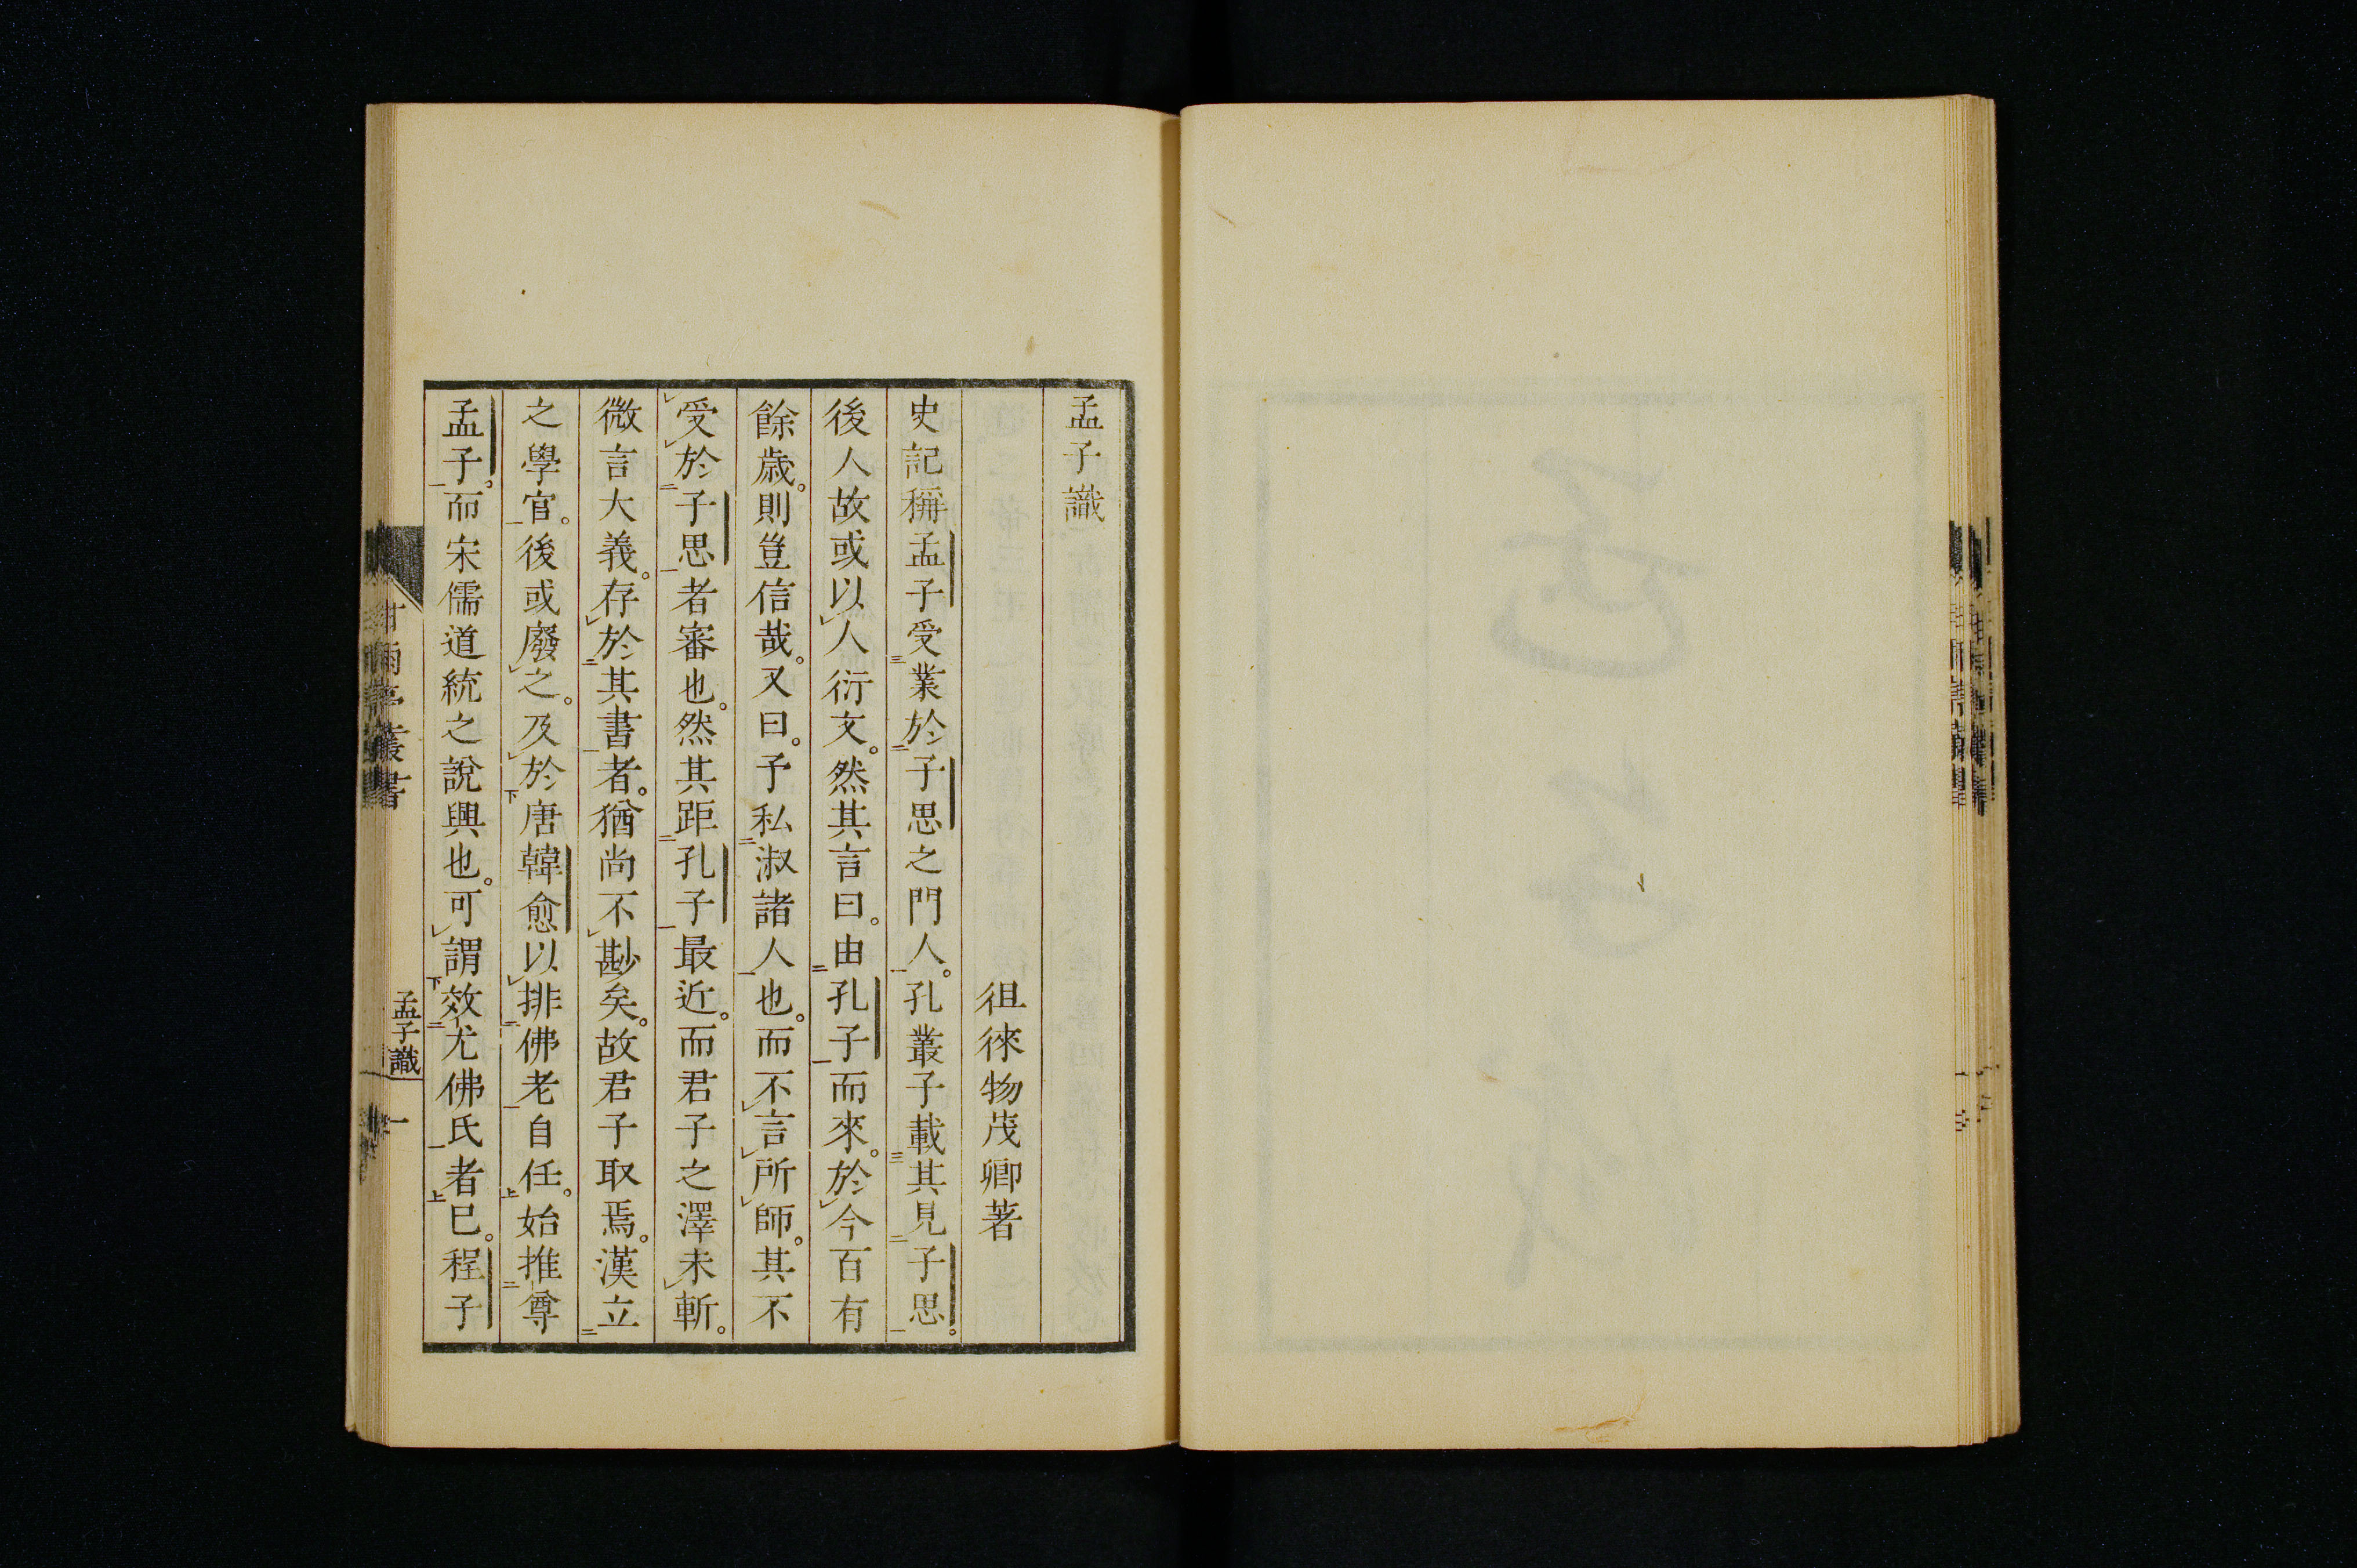 孟子識
徂徠物茂卿著
史記稱孟子受業於子思之門人。孔叢子載其見子思。
後人故或以人衍文。然其言曰。由孔子而來。於今百有
餘歲。則豈信哉。又曰。予私淑諸人也。而不言所師。其不
受於子思者審也。然其距孔子最近。而君子之澤未斬。
微言大義。存於其書者。猶尚不尠矣。故君子取焉。漢立
之學官。後或廢之。及於唐韓愈以排佛老自任。始推尊
孟子。而宋儒道統之說興也。可謂效尤佛氏者已。程子
甘雨亭叢書
孟子識
一